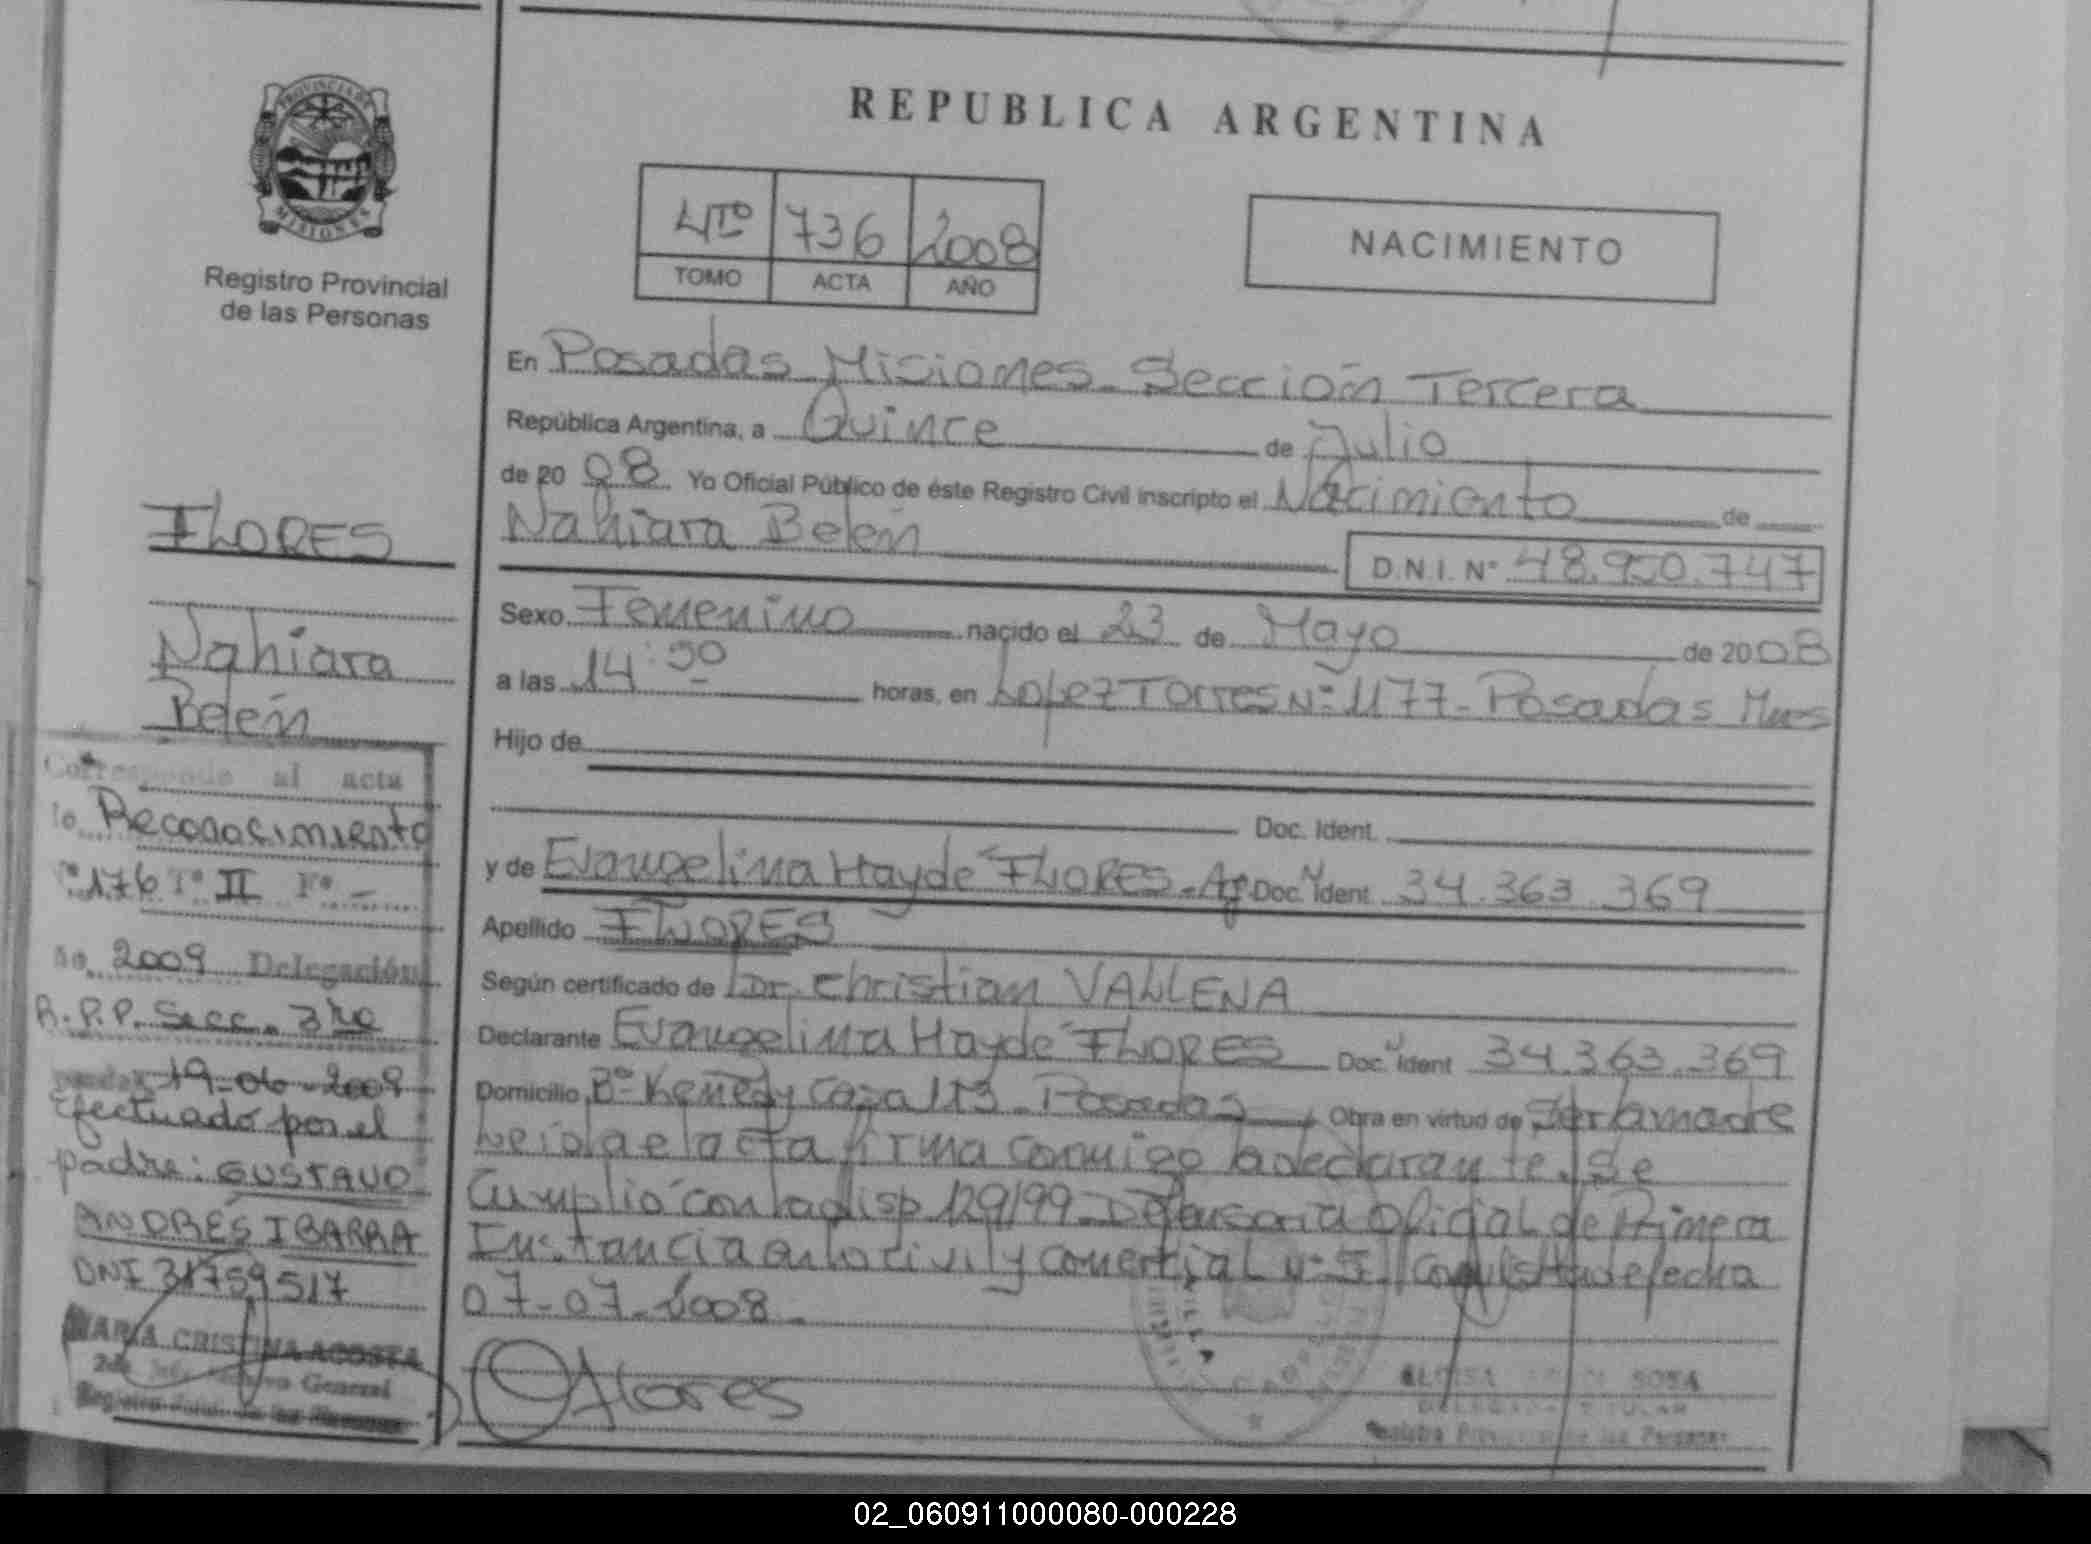 REPUBLICA ARGENTINA
PROVINCIA DE
MISIONES
Registro Provincial
de las Personas
4to 736 2008
TOMO ACTA AÑO
NACIMIENTO
En Posadas Misiones Sección Tercera
República Argentina, a Quince de Julio
de 20 08 Yo Oficial Público de éste Registro Civil inscripto el Nacimiento de
Nahiara Belén
D.N.I. Nº 48.950.747
Sexo Femenino nacido el 23 de Mayo de 2008
a las 14: horas, en Lopez Torres Nº 1177 - Posadas Mnes
Hijo de
Doc. Ident.
y de Evangelina Haydé FLORES - Ag Doc. Ident. 34.363.369
Apellido FLORES
Según certificado de Dr. Christian VALLENA
Declarante Evangelina Haydé FLORES Doc. Ident 34.363.369
Domicilio Bº Kenedy Casa 113 - Posadas Obra en virtud de Ser la madre
Leida el acta firma conmigo la declarante. Se
Cumplió con la disp 129/99 - Defensoria Oficial de Primera
Instancia en lo Civil y Comercial Nº 5 de fecha
07-07-2008
Flores
SOSA
DELEGADA TITULAR
Registro Provincial de las Personas
FLORES
Nahiara
Belén
Corresponde al acta
Reconocimiento
176 Tº II Fº -
2009 Delegación
R.P.P. Secc. 3ra
19-06-2009
Efectuado por el
padre: GUSTAVO
ANDRÉS IBARRA
DNI 31759517
MARIA CRISTINA ACOSTA
General
02_060911000080-000228